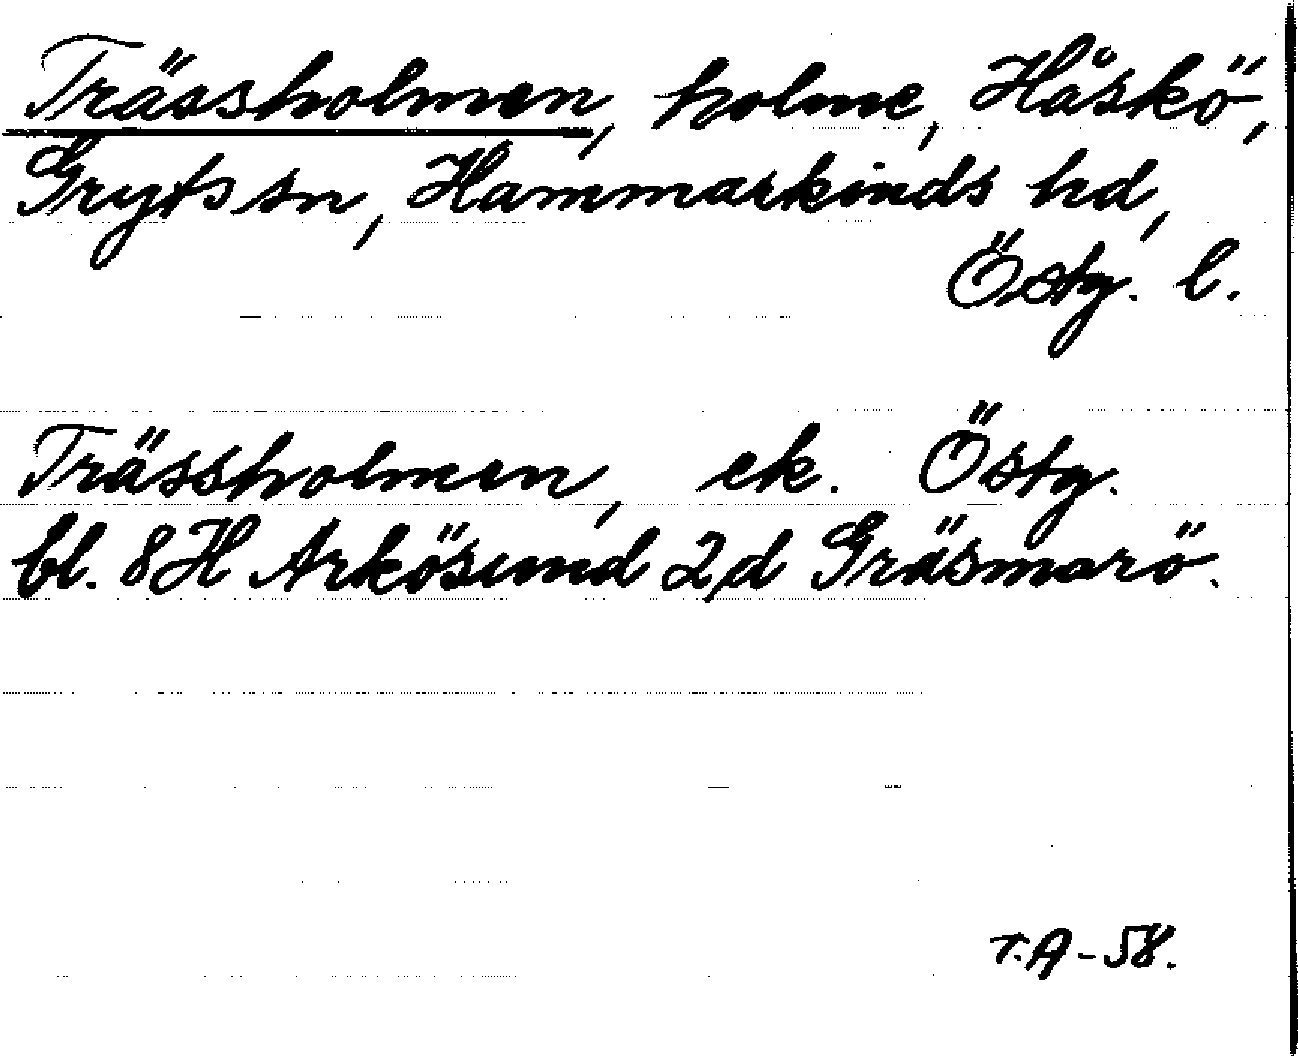 Trässholmen, holme, Håskö,
Gryts sn, Hammarkinds hd,
Östg. l.
Trässholmen, ek. Östg.
bl. 8H Arkösund 2,d Gräsmarö.
T.A-58.